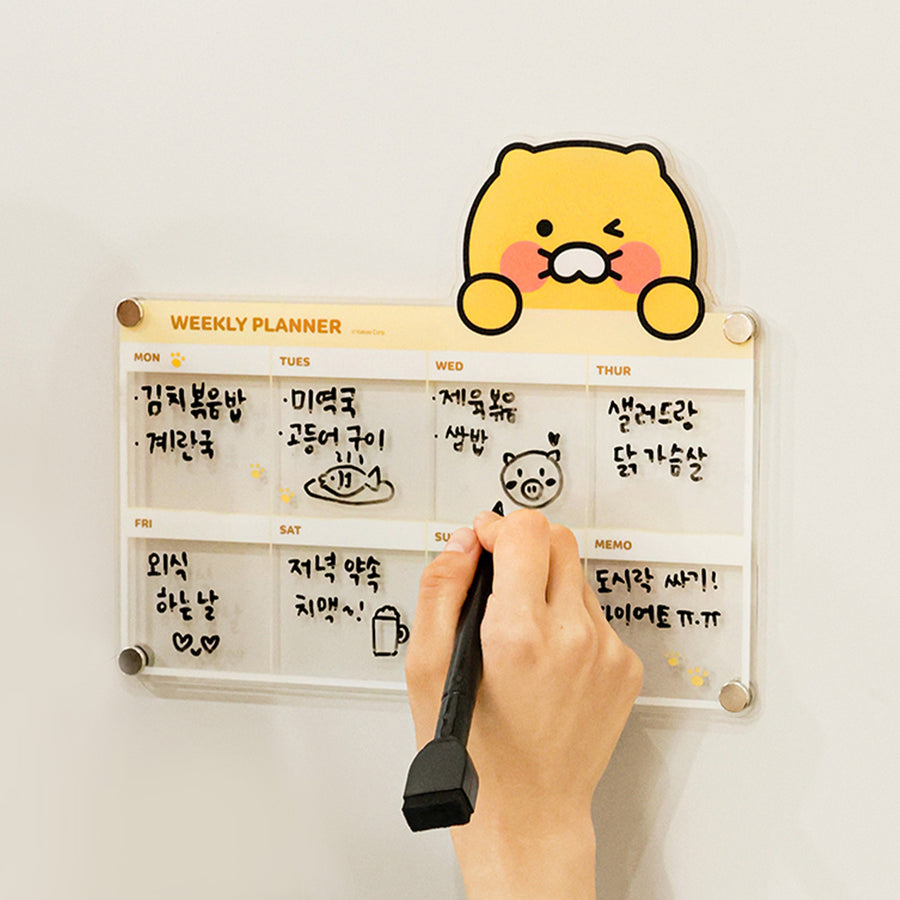 WEEKLY PLANNER
© Kakao Corp.
MON
TUES
WED
THUR
· 김치볶음밥
· 계란국
· 미역국
· 고등어 구이
· 제육볶음
· 쌀밥
샐러드랑
닭가슴살
FRI
SAT
SU
MEMO
외식
하는 날
저녁 약속
치맥~!
도시락 싸기!
다이어트 ㅠ.ㅠ